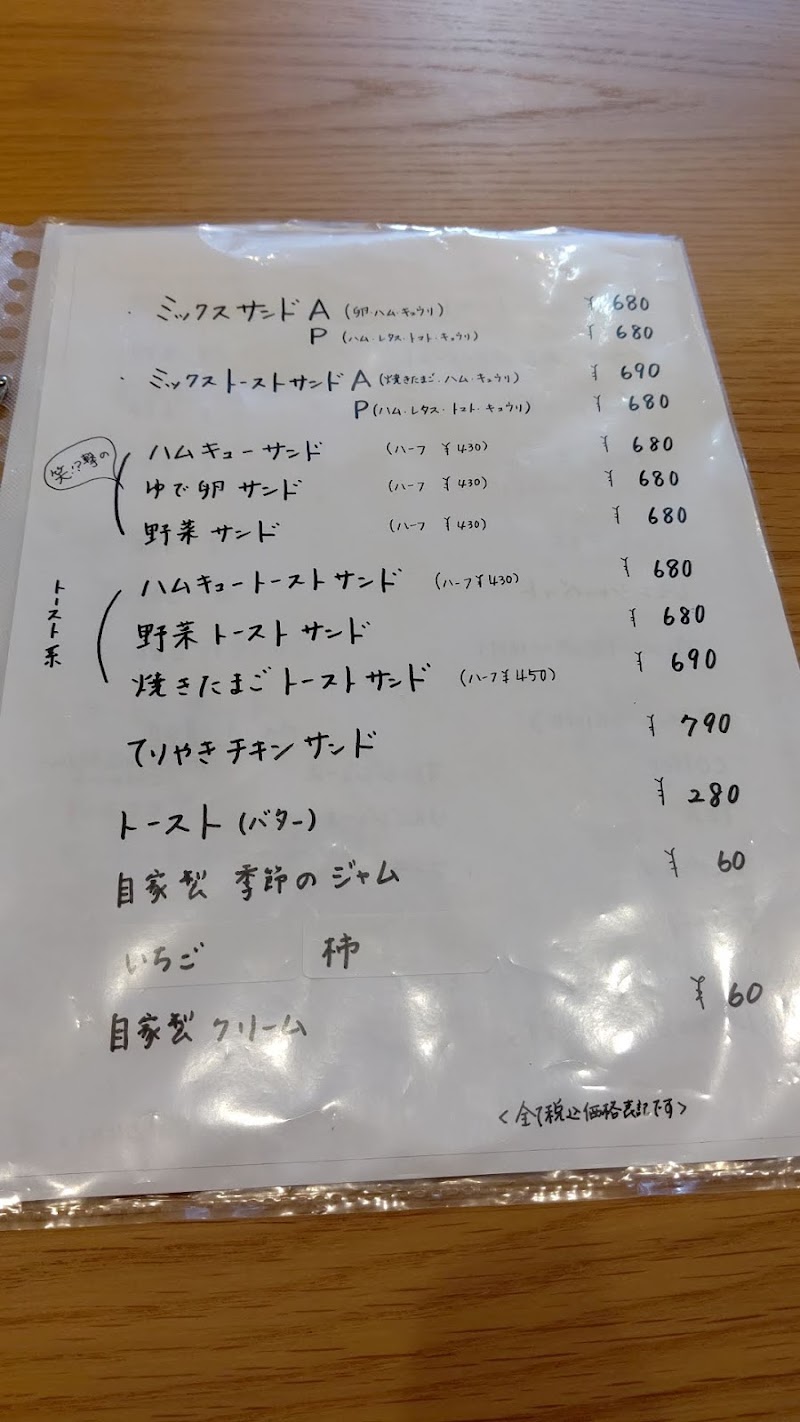 ・ミックスサンド A (卵・ハム・キュウリ) ¥680
P (ハム・レタス・トマト・キュウリ) ¥680
・ミックストーストサンド A (焼きたまご・ハム・キュウリ) ¥690
P (ハム・レタス・トマト・キュウリ) ¥680
ハムキューサンド (ハーフ ¥430) ¥680
ゆで卵サンド (ハーフ ¥430) ¥680
野菜サンド (ハーフ ¥430) ¥680
トースト系
ハムキュートーストサンド (ハーフ¥430) ¥680
野菜トーストサンド ¥680
焼きたまごトーストサンド (ハーフ¥450) ¥690
てりやきチキンサンド ¥790
トースト(バター) ¥280
自家製 季節のジャム ¥60
いちご 柿
自家製クリーム ¥60
<全て税込価格表記です>